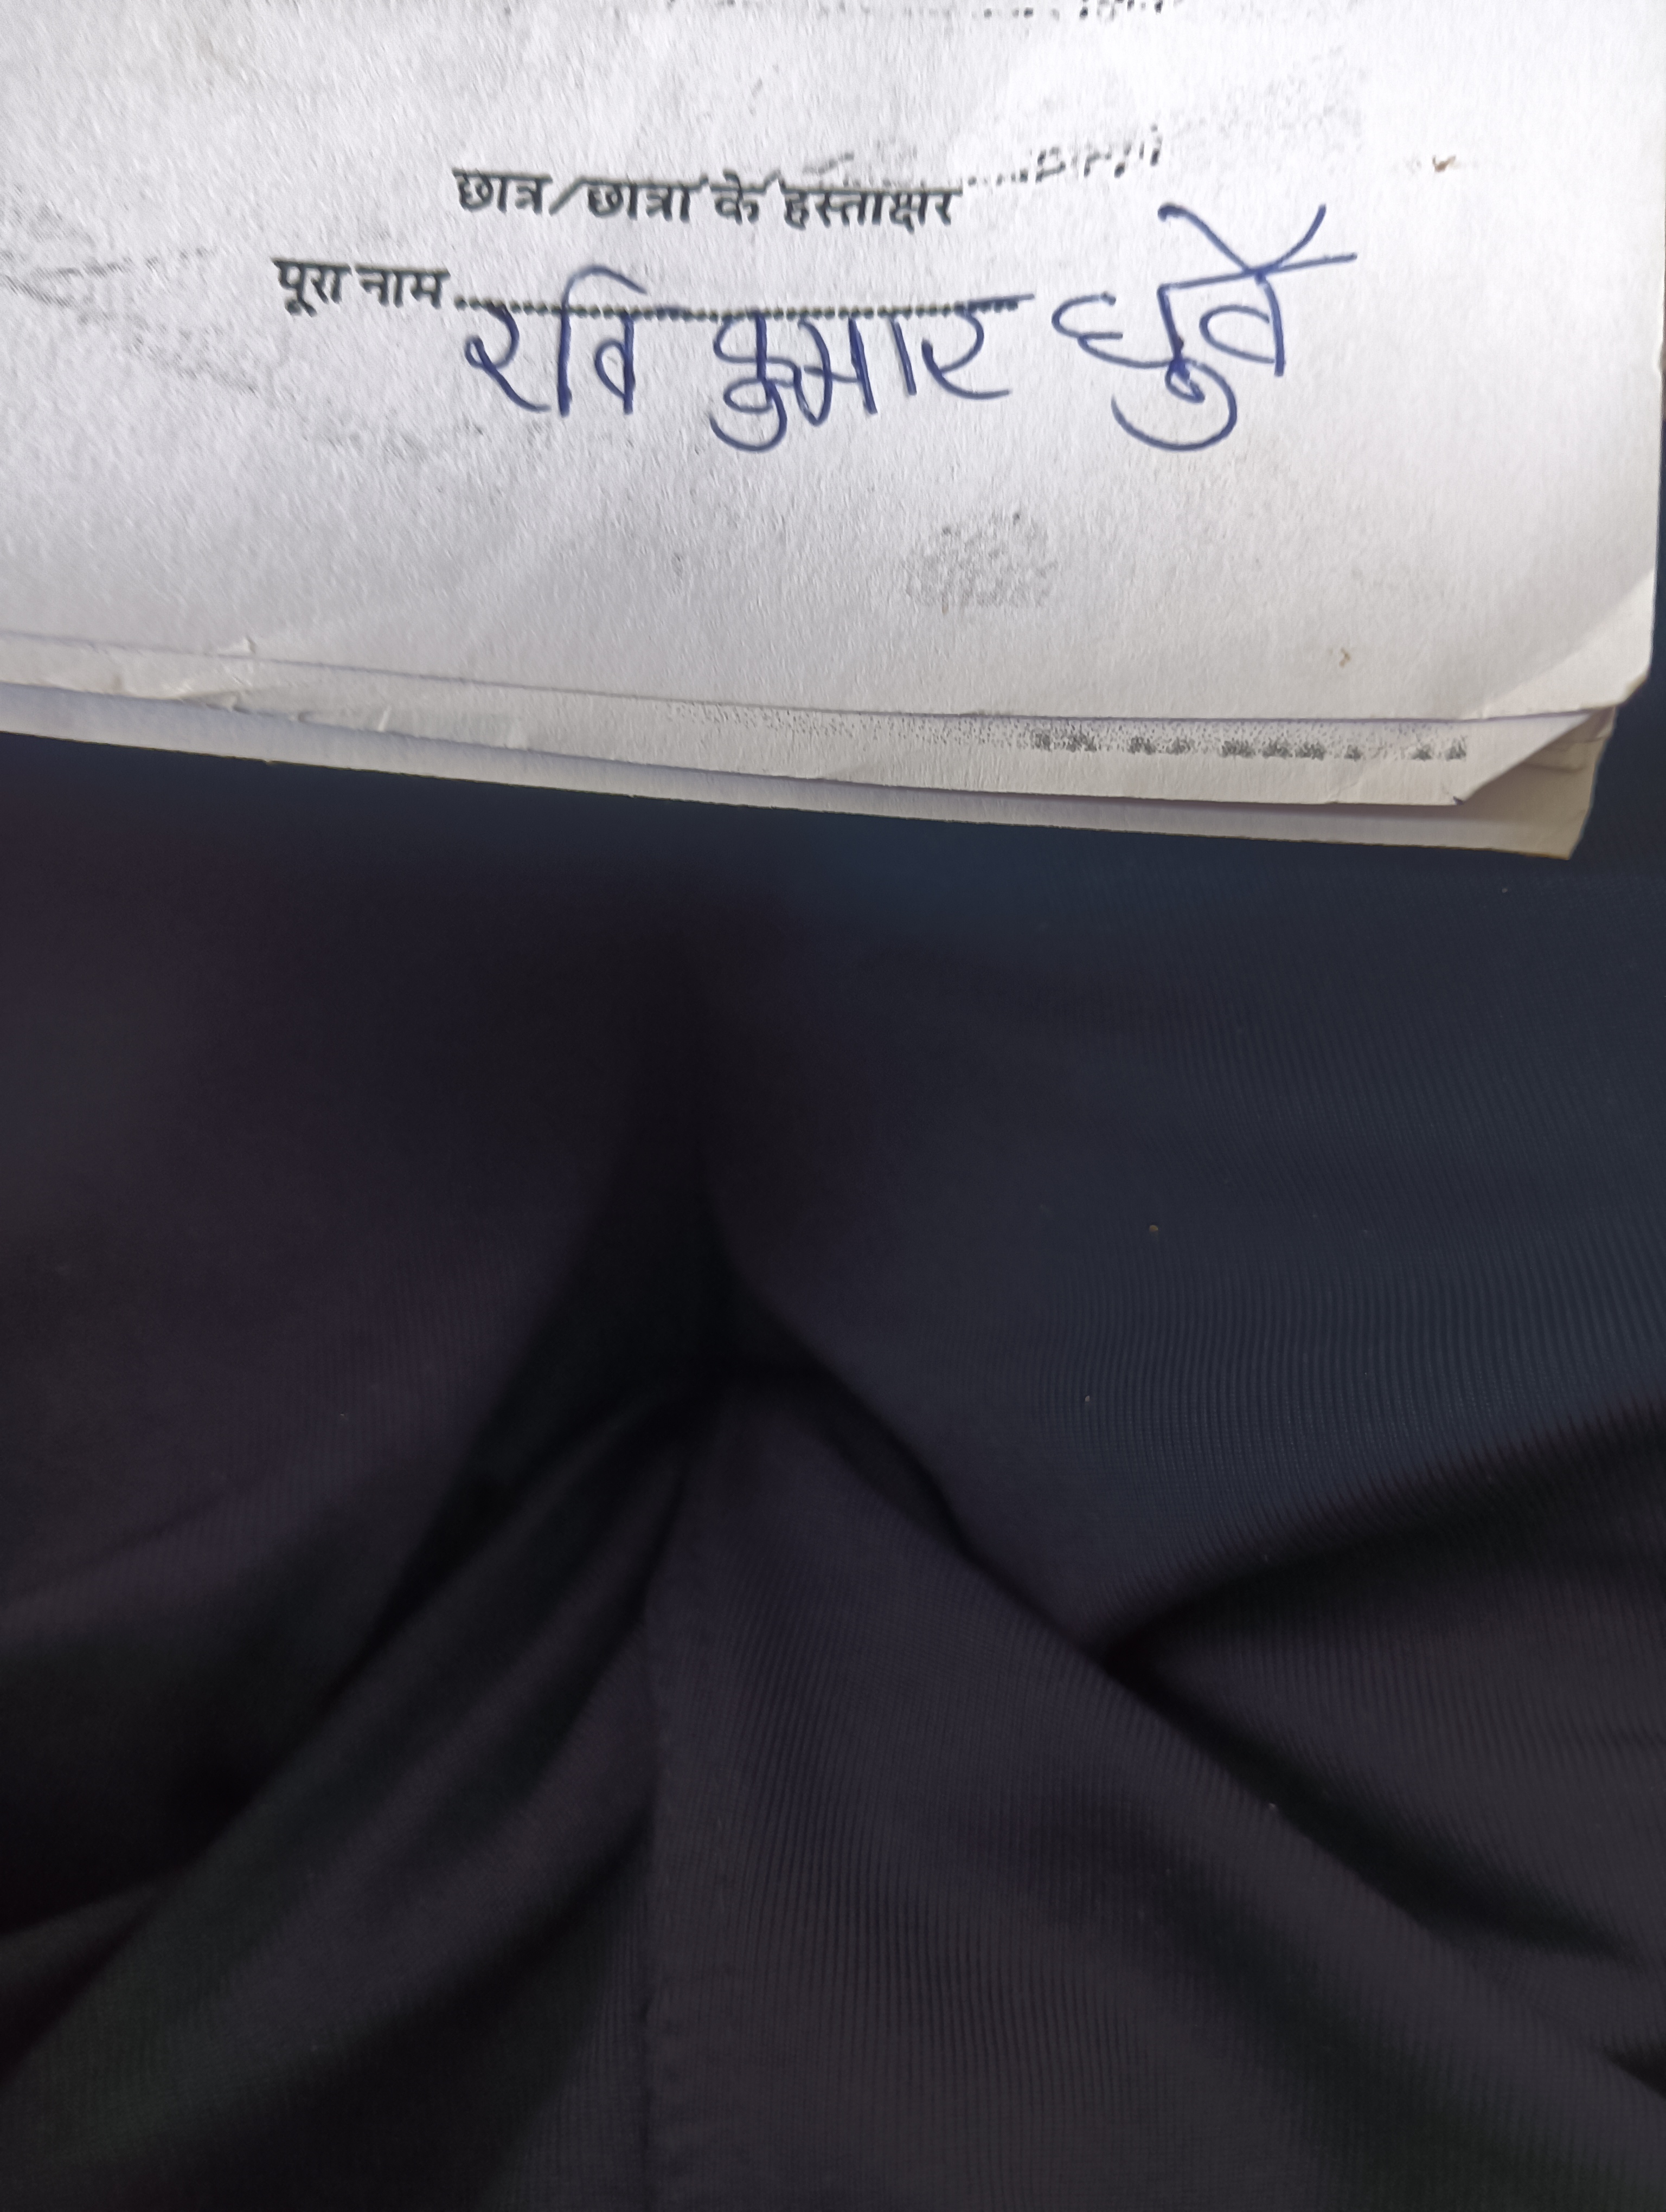 छात्र/छात्रा के हस्ताक्षर
पूरा नाम रवि कुमार धुर्वे